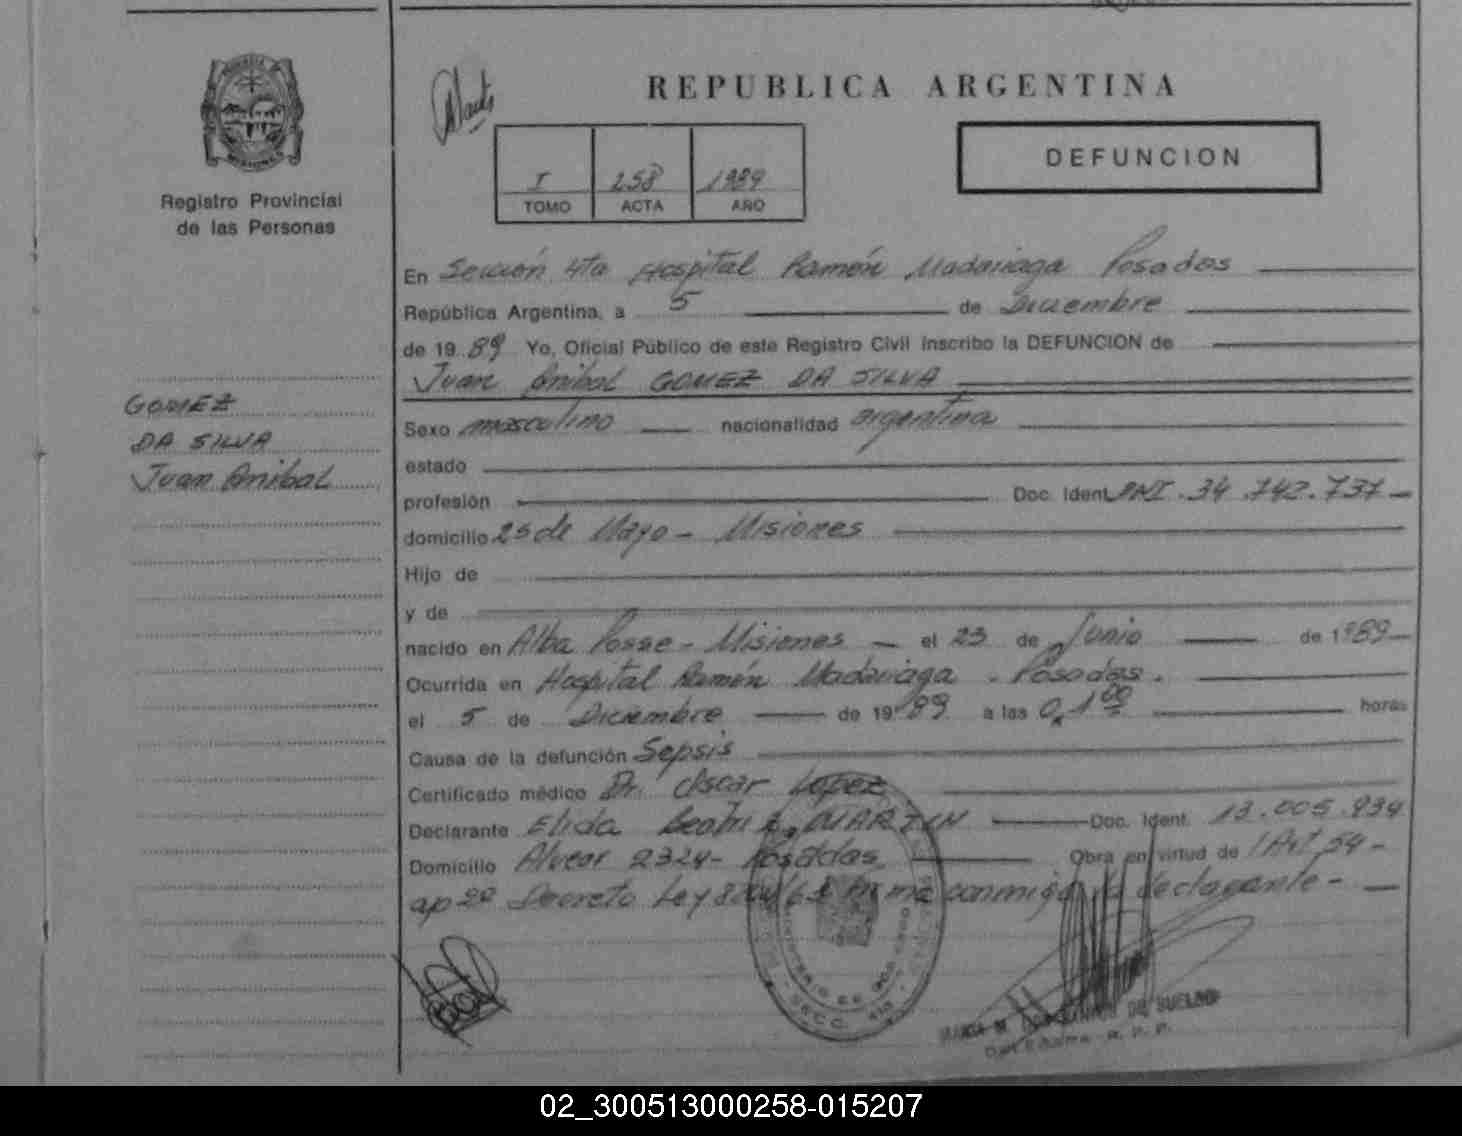 REPUBLICA ARGENTINA
MISIONES
Registro Provincial
de las Personas
I 258 1989
TOMO ACTA AÑO
DEFUNCION
En Sección 4ta Hospital Ramón Madariaga Posadas
República Argentina, a 5 de Diciembre
de 19 89 Yo, Oficial Público de este Registro Civil inscribo la DEFUNCION de
Juan Anibal GOMEZ DA SILVA
GOMEZ
DA SILVA
Juan Anibal
Sexo masculino nacionalidad argentina
estado
profesión Doc. Ident. DNI. 34.742.737
domicilio 25 de Mayo - Misiones
Hijo de
y de
nacido en Alba Posse - Misiones el 23 de Junio de 1989
Ocurrida en Hospital Ramón Madariaga - Posadas.
el 5 de Diciembre de 1989 a las 0,1 00 horas
Causa de la defunción Sepsis
Certificado médico Dr. Oscar Lopez
Declarante Elida Beatriz MARTIN Doc. Ident. 13.005.934
Domicilio Alvear 2324 - Posadas Obra en virtud de Art 54 -
ap 2º Decreto Ley firma conmigo la declarante -
SECC. 4ta
DE SUELDO
R. P. P.
02_300513000258-015207